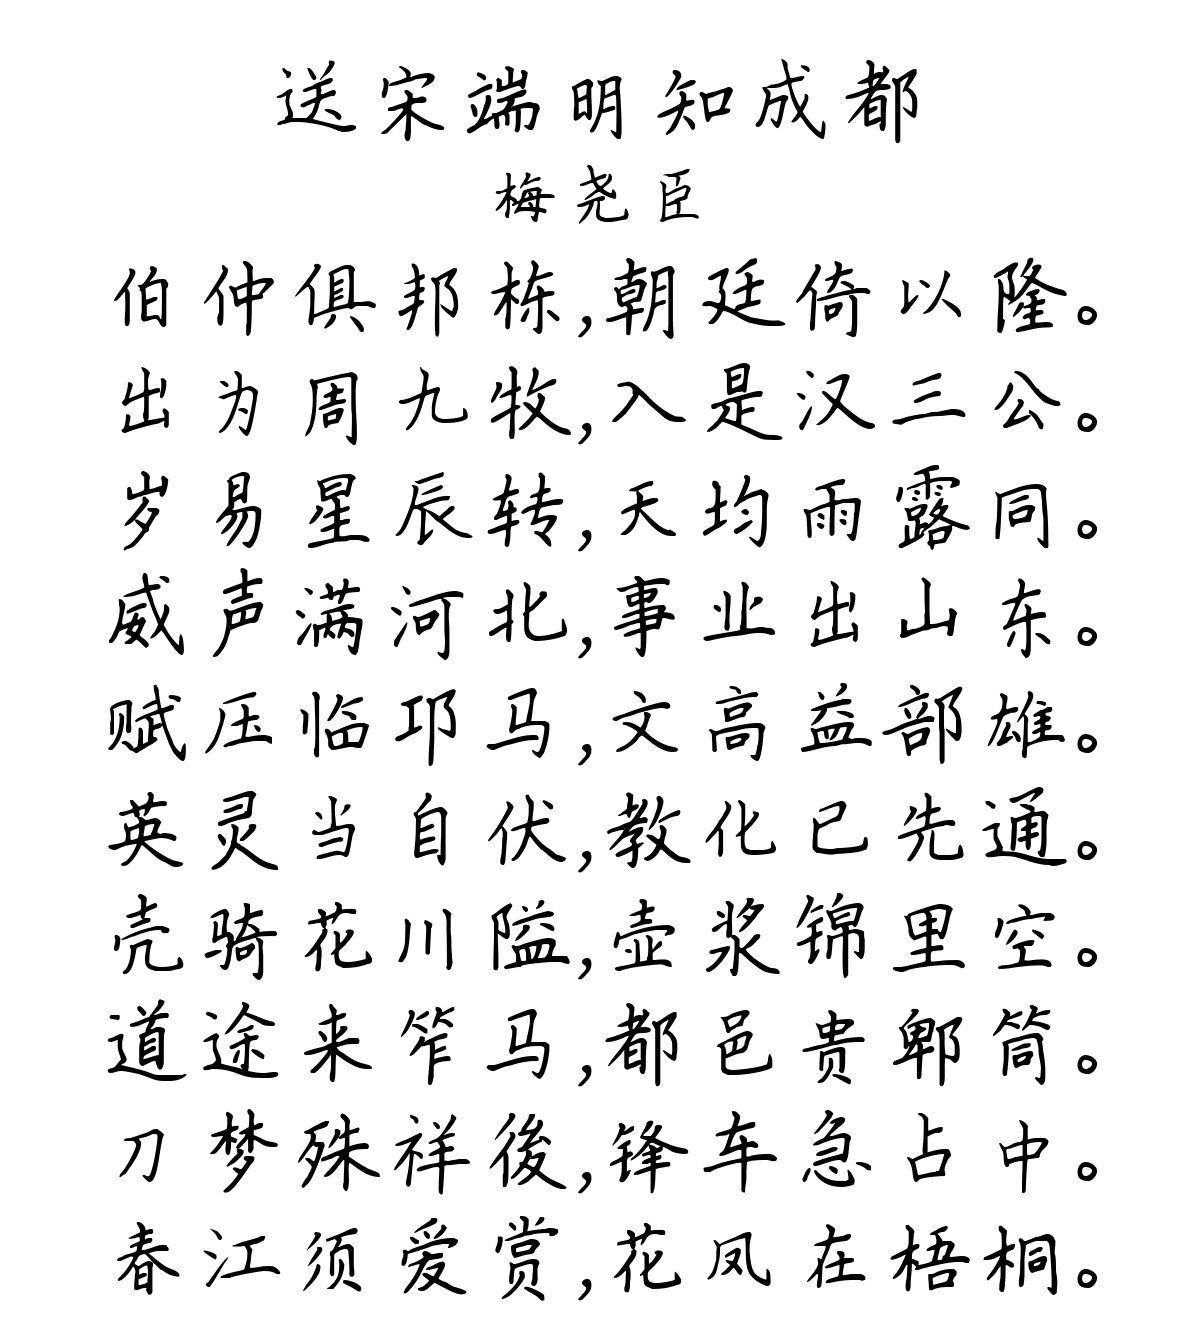 送宋端明知成都
梅尧臣
伯仲俱邦栋,朝廷倚以隆。
出为周九牧,入是汉三公。
岁易星辰转,天均雨露同。
威声满河北,事业出山东。
赋压临邛马,文高益部雄。
英灵当自伏,教化已先通。
壳骑花川隘,壶浆锦里空。
道途来笮马,都邑贵郫筒。
刀梦殊祥後,锋车急占中。
春江须爱赏,花凤在梧桐。